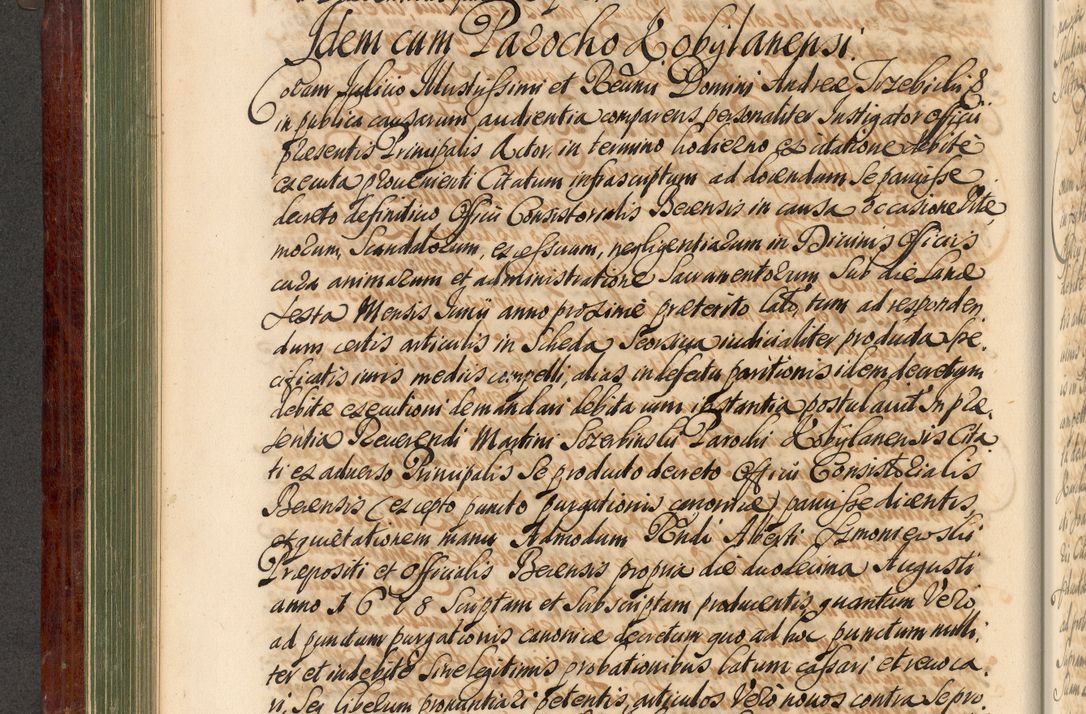 Idem cum Parocho Kobylanensi.
Coram Judicio Illustrissimi et Reverendissimi Domini Andreæ Trzebicki &
in publica causarum audientia comparens personaliter Instigator Officii
præsentis Principalis Actor, in termino hodierno ex citatione debitè
executa provenienti Citatum infrascriptum ad docendum se paruisse
decreto definitivo Officii Consistorialis Becensis in causa occasione
morum, Scandalorum, excessuum, negligentiarum in Divinis Officiis
cura animarum et administratione Sacramentorum sub die
sexta Mensis Junii anno proxime præterito lato, tum ad responden,
dum certis articulis in Scheda seorsiva judicialiter producta spe,
cificatis juris mediis compelli, alias in defectu paritionis idem decretum
debitæ executioni demandari debita cum instantia postulavit. In præ,
sentia Reverendi Martini Parochi Kobylanensis Cita
ti ex adverso Principalis se producto decreto Officii Consistorialis
Becensis (excepto puncto purgationis canonicæ) paruisse dicentis,
et quietationem manu Admodum Rndi Alberti
Præpositi et Officialis Becensis propria die duodecima Augusti
anno scriptam et subscriptam producentis, quantum Verò
ad punctum purgationis canonicæ decretum quo ad hoc punctum nulli,
ter et indebitè sine legitimis probationibus latum cassari et revoca,
ri, sei liberum pronuntiari petentis, articulos Verò novos contra se pro,